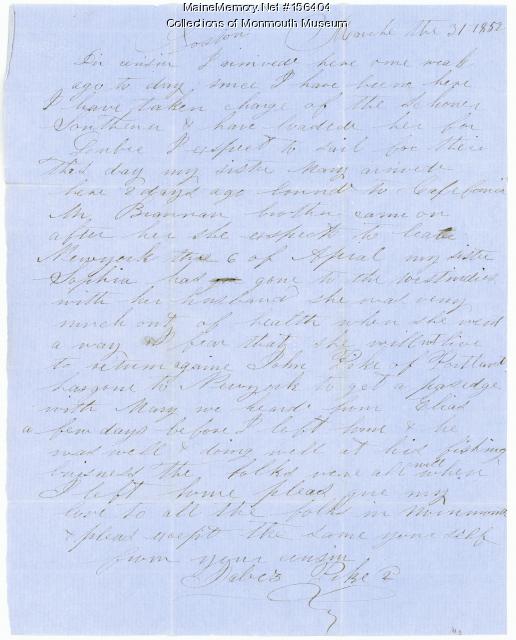 MaineMemory.Net #156404
Collections of Monmouth Museum
Boston Marche the 31 1852
Dr cusin I arived here one weak
ago to day since I have been here
I have taken charge of the Schoner
Southerner & have loaded her for
I exspect to sail for their
this day my sister Mary arived
here 2 days ago bound to California
Mr, Brannan brother came on
after her she exspects to leave
Newyork the 6 of Apiral my sister
Sophia has gone to the westindies
with her husband she was very
much out of health when she went
a way I fear that she will not live
to return againe John Pike of Portland
has gone to Newyork to get a pasedge
with Mary we heard from Elias
a few days before I left home & he
was well & doing well at his fishing
buisness the folks were all well when
I left home pleas give my
love to all the folks in
& pleas except the same your self
from your cusin
Jabez Pike 2